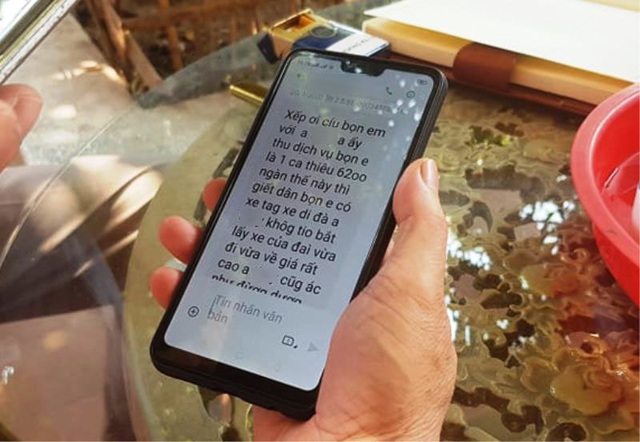 Xếp ơi cíu bọn em
với a a ấy
thu dịch vụ bọn e
là 1 ca thiêu 6200
ngàn thế này thì
giết dân bọn e có
xe tag xe di đà a
khóg tio bắt
lấy xe của đaì vừa
đi vừa về giá rất
cao a , cũg ác
Tin nhắn văn
bản